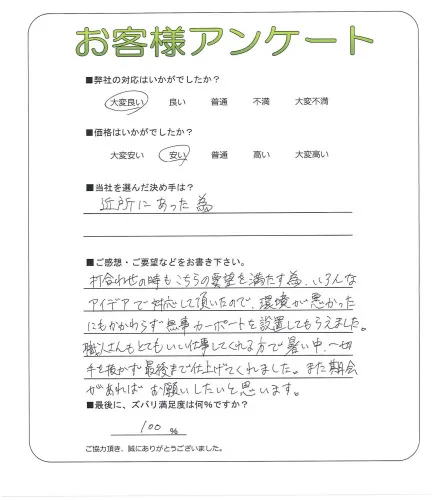 お客様アンケート
■弊社の対応はいかがでしたか？
大変良い 良い 普通 不満 大変不満
■価格はいかがでしたか？
大変安い 安い 普通 高い 大変高い
■当社を選んだ決め手は？
近所にあった為
■ご感想・ご要望などをお書き下さい。
打合わせの時もこちらの要望を満たす為、いろんな
アイデアで対応して頂いたので、環境が悪かった
にもかかわらず無事カーポートを設置してもらえました。
職人さんもとてもいい仕事してくれる方で暑い中、一切
手を抜かず最後まで仕上げてくれました。また機会
があればお願いしたいと思います。
■最後に、ズバリ満足度は何%ですか？
100 %
ご協力頂き、誠にありがとうございました。